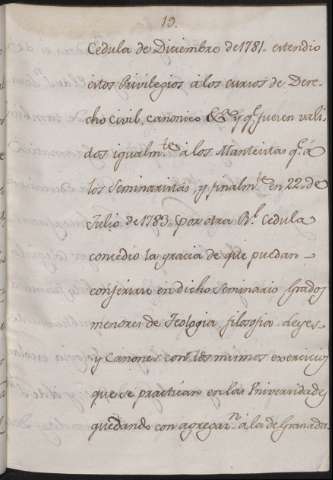 19.
Cedula de Diciembre de 1781. extendio
estos Privilegios á los cursos de Dere-
cho Civil, canonico &c.ª y q.e fuesen vali-
dos igualm.te á los Manteistas q.e á
los Seminaristas, y finalm.te en 22. de
Julio de 1783. por otra R.l Cedula
concedio la gracia de que puedan
conferirse en dicho Seminario Grados
menores de Teologia filosofia Leyes
y Canones con los mismos exercicios
que se practican en las Universidades
quedando con agregaz.n á la de Granada